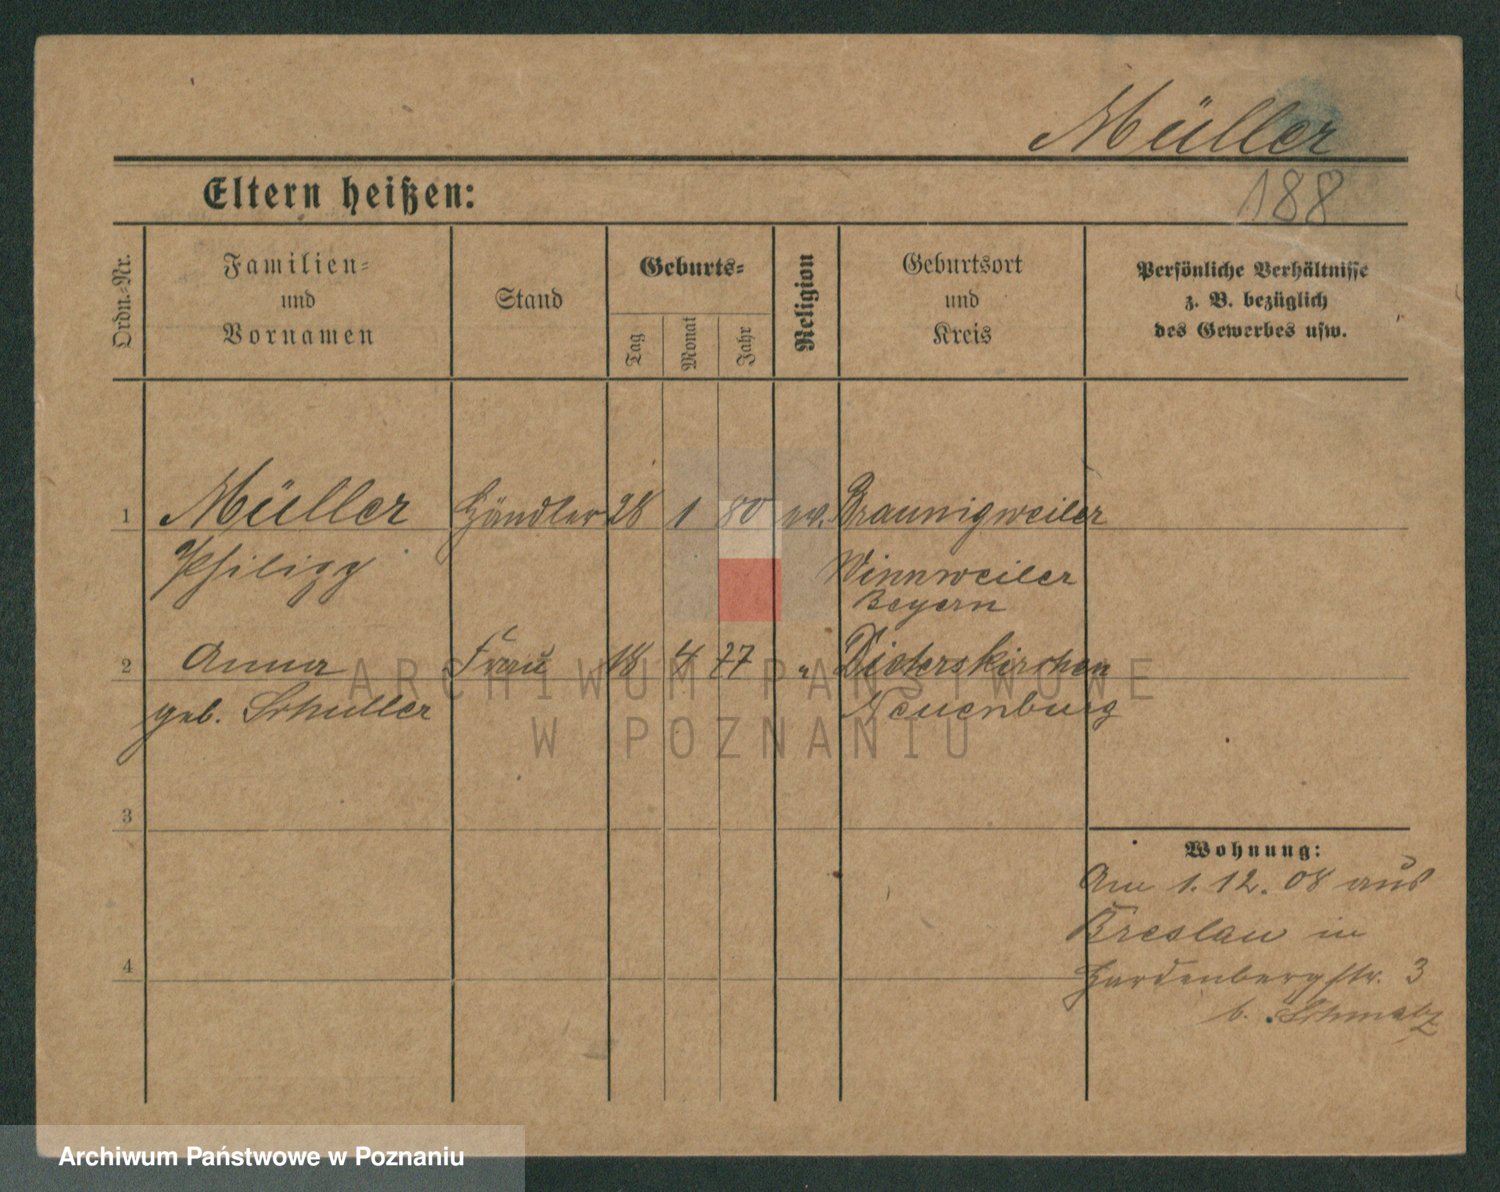 Müller
188
Eltern heißen:
Ordn.-Nr.
Familien-
und
Vornamen
Stand
Geburts-
Tag
Monat
Jahr
Religion
Geburtsort
und
Kreis
Persönliche Verhältnisse
z. B. bezüglich
des Gewerbes usw.
1 Müller Händler 28 1 80 ev. Braunigweiler
Philipp Winnweiler
Beyern
2 Anna Frau 18 4 77 " Dieterskirchen
geb. Schuller Neuenburg
3
4
Wohnung:
Am 1.12.08 aus
Breslau in
Hardenbergstr. 3
b. Schmalz
ARCHIWUM PAŃSTWOWE
W POZNANIU
Archiwum Państwowe w Poznaniu